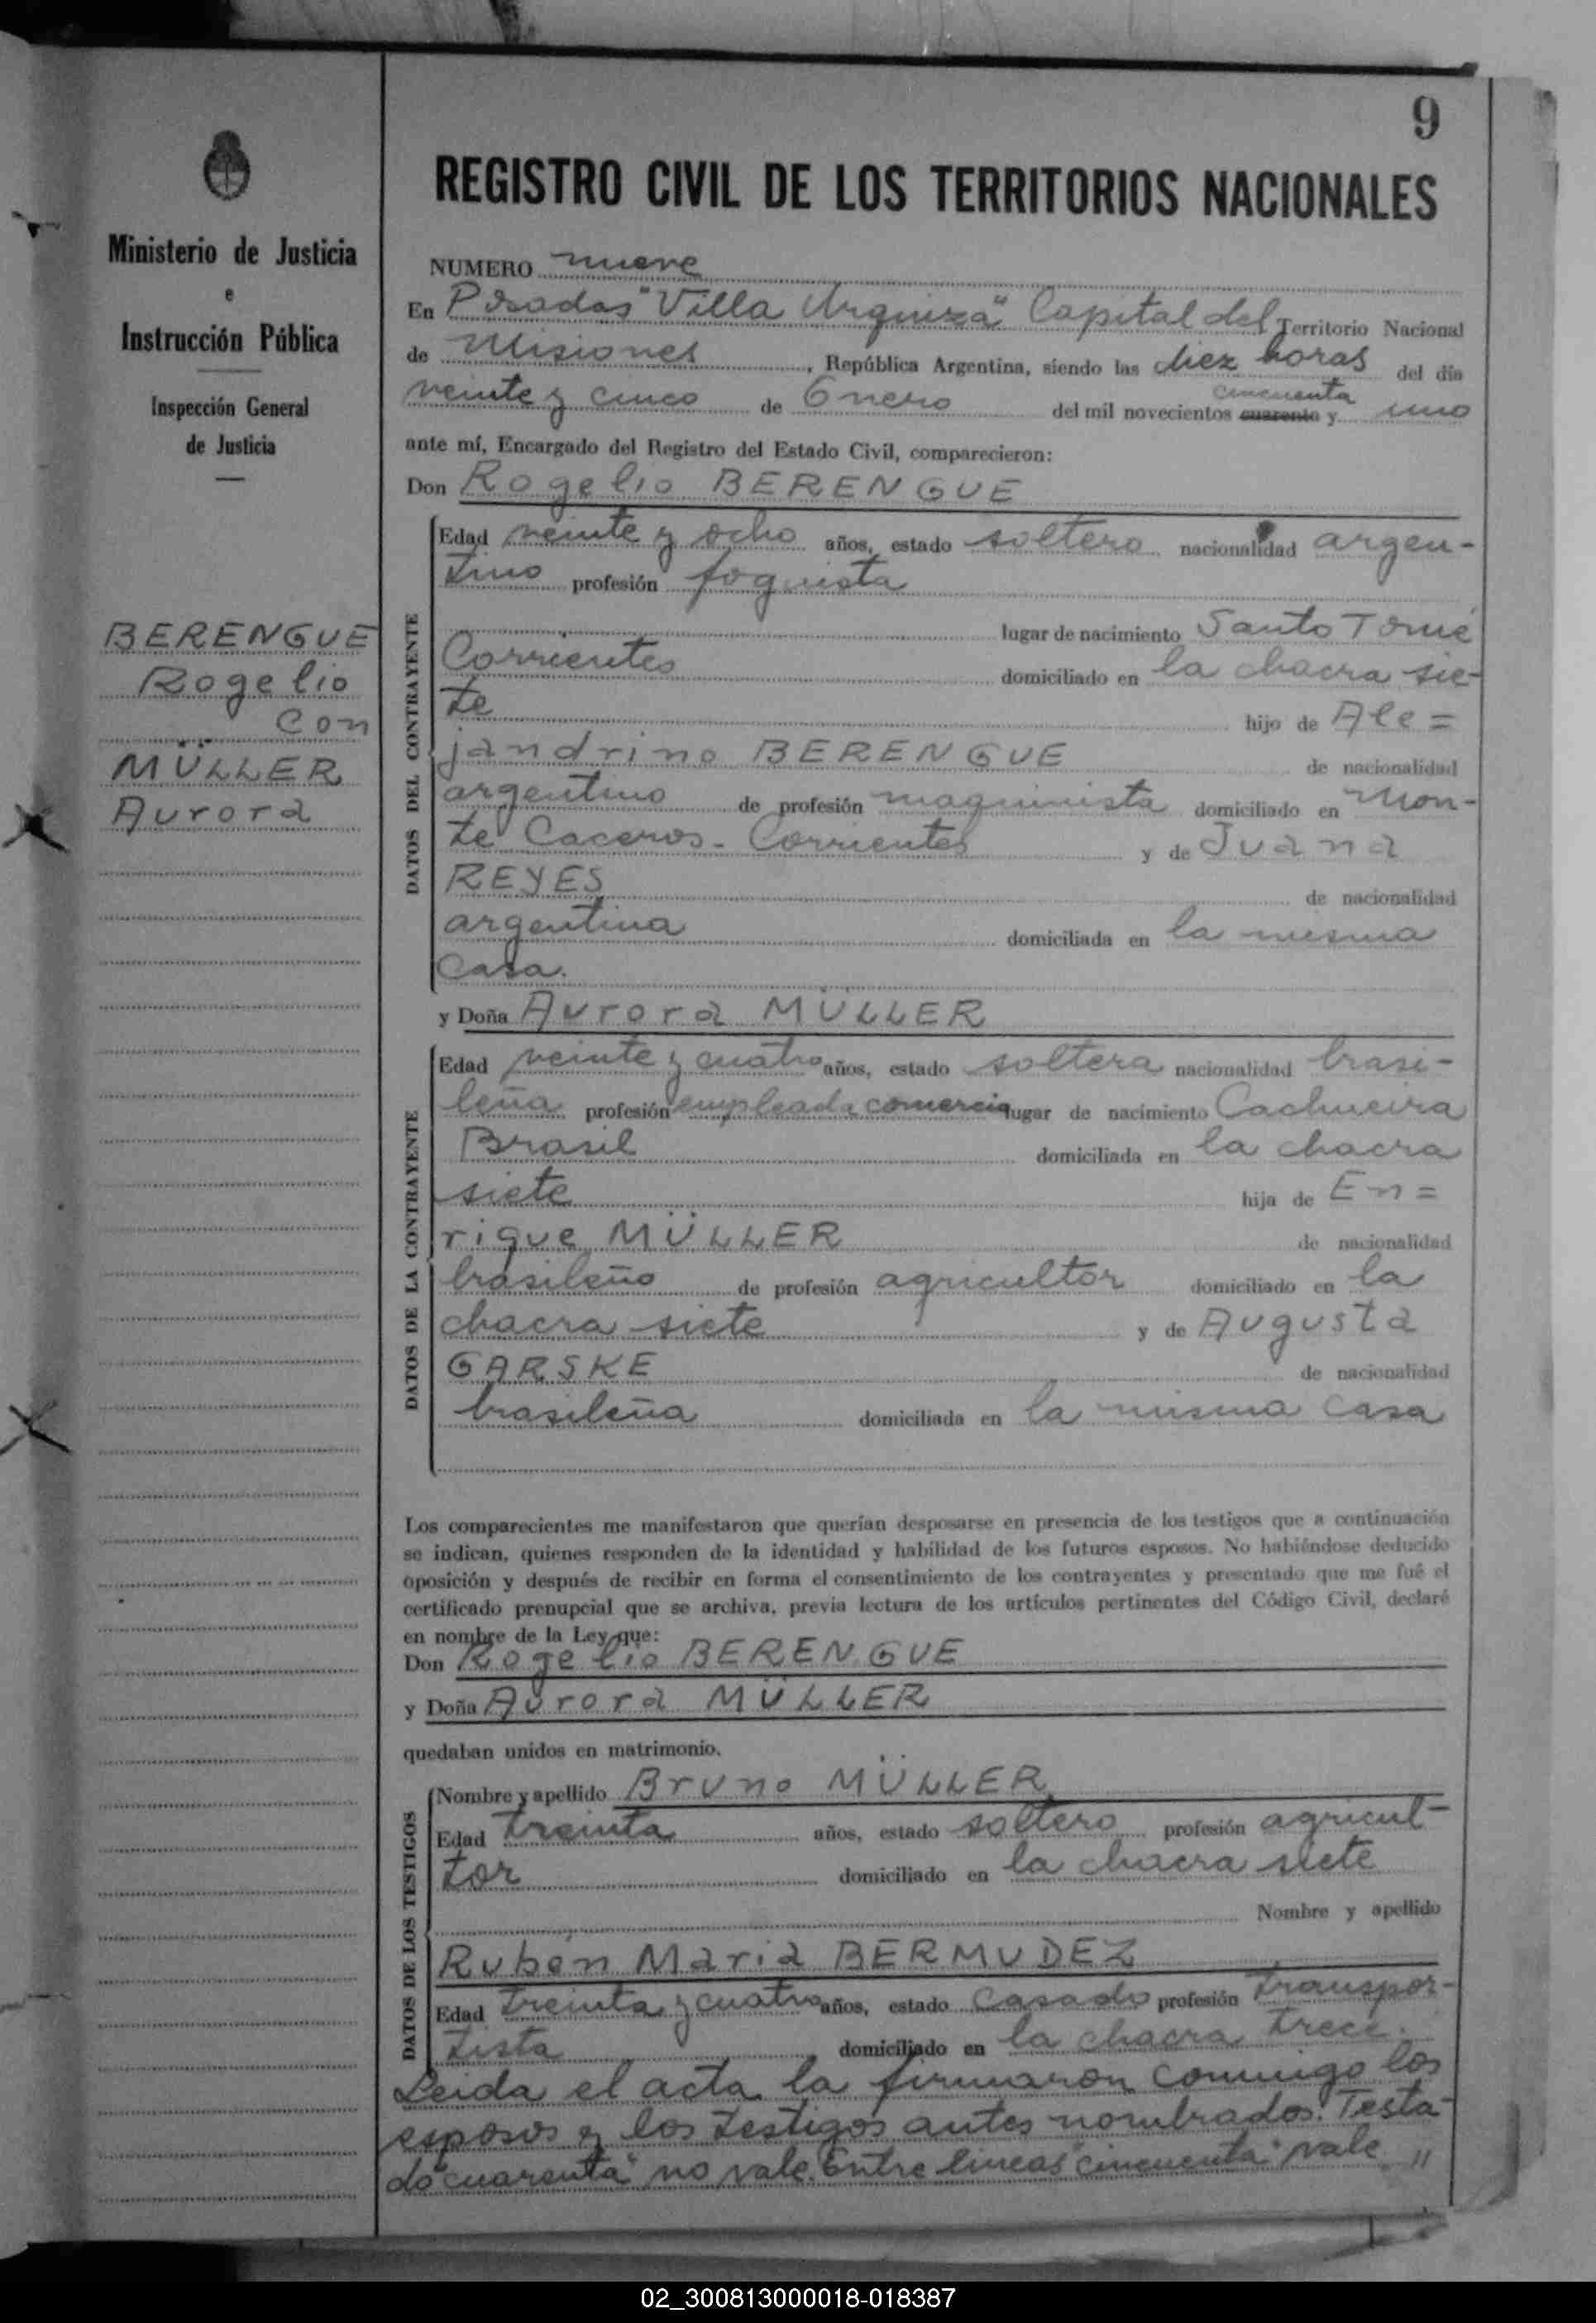 9
REGISTRO CIVIL DE LOS TERRITORIOS NACIONALES
Ministerio de Justicia
e
Instrucción Pública
Inspección General
de Justicia
BERENGUE
Rogelio
con
MÜLLER
Aurora
NUMERO nueve
En Posadas "Villa Urquiza" Capital del Territorio Nacional
de Misiones, República Argentina, siendo las diez horas del día
cincuenta
veinte y cinco de Enero del mil novecientos cuarenta y uno
ante mí, Encargado del Registro del Estado Civil, comparecieron:
Don Rogelio BERENGUE
DATOS DEL CONTRAYENTE
Edad veinte y ocho años, estado soltero nacionalidad argen-
tino profesión foguista
lugar de nacimiento Santo Tomé
Corrientes domiciliado en la chacra sie-
te hijo de Ale=
jandrino BERENGUE de nacionalidad
argentino de profesión maquinista domiciliado en Mon-
te Caceros - Corrientes y de Juana
REYES de nacionalidad
argentina domiciliada en la misma
casa.
y Doña Aurora MÜLLER
DATOS DE LA CONTRAYENTE
Edad veinte y cuatro años, estado soltera nacionalidad brasi-
leña profesión empleada comercio lugar de nacimiento Cachueira
Brasil domiciliada en la chacra
siete hija de En=
rique MÜLLER de nacionalidad
brasileño de profesión agricultor domiciliado en la
chacra siete y de Augusta
GARSKE de nacionalidad
brasileña domiciliada en la misma casa
Los comparecientes me manifestaron que querían desposarse en presencia de los testigos que a continuación
se indican, quienes responden de la identidad y habilidad de los futuros esposos. No habiéndose deducido
oposición y después de recibir en forma el consentimiento de los contrayentes y presentado que me fué el
certificado prenupcial que se archiva, previa lectura de los artículos pertinentes del Código Civil, declaré
en nombre de la Ley que:
Don Rogelio BERENGUE
y Doña Aurora MÜLLER
quedaban unidos en matrimonio.
DATOS DE LOS TESTIGOS
Nombre y apellido Bruno MÜLLER
Edad treinta años, estado soltero profesión agricul-
tor domiciliado en la chacra siete
Nombre y apellido
Rubén Maria BERMUDEZ
Edad treinta y cuatro años, estado casado profesión transpor-
tista domiciliado en la chacra trece.
Leida el acta la firmaron conmigo los
esposos y los testigos antes nombrados. Testa-
do "cuarenta" no vale. Entre lineas "cincuenta" vale "
02_300813000018-018387